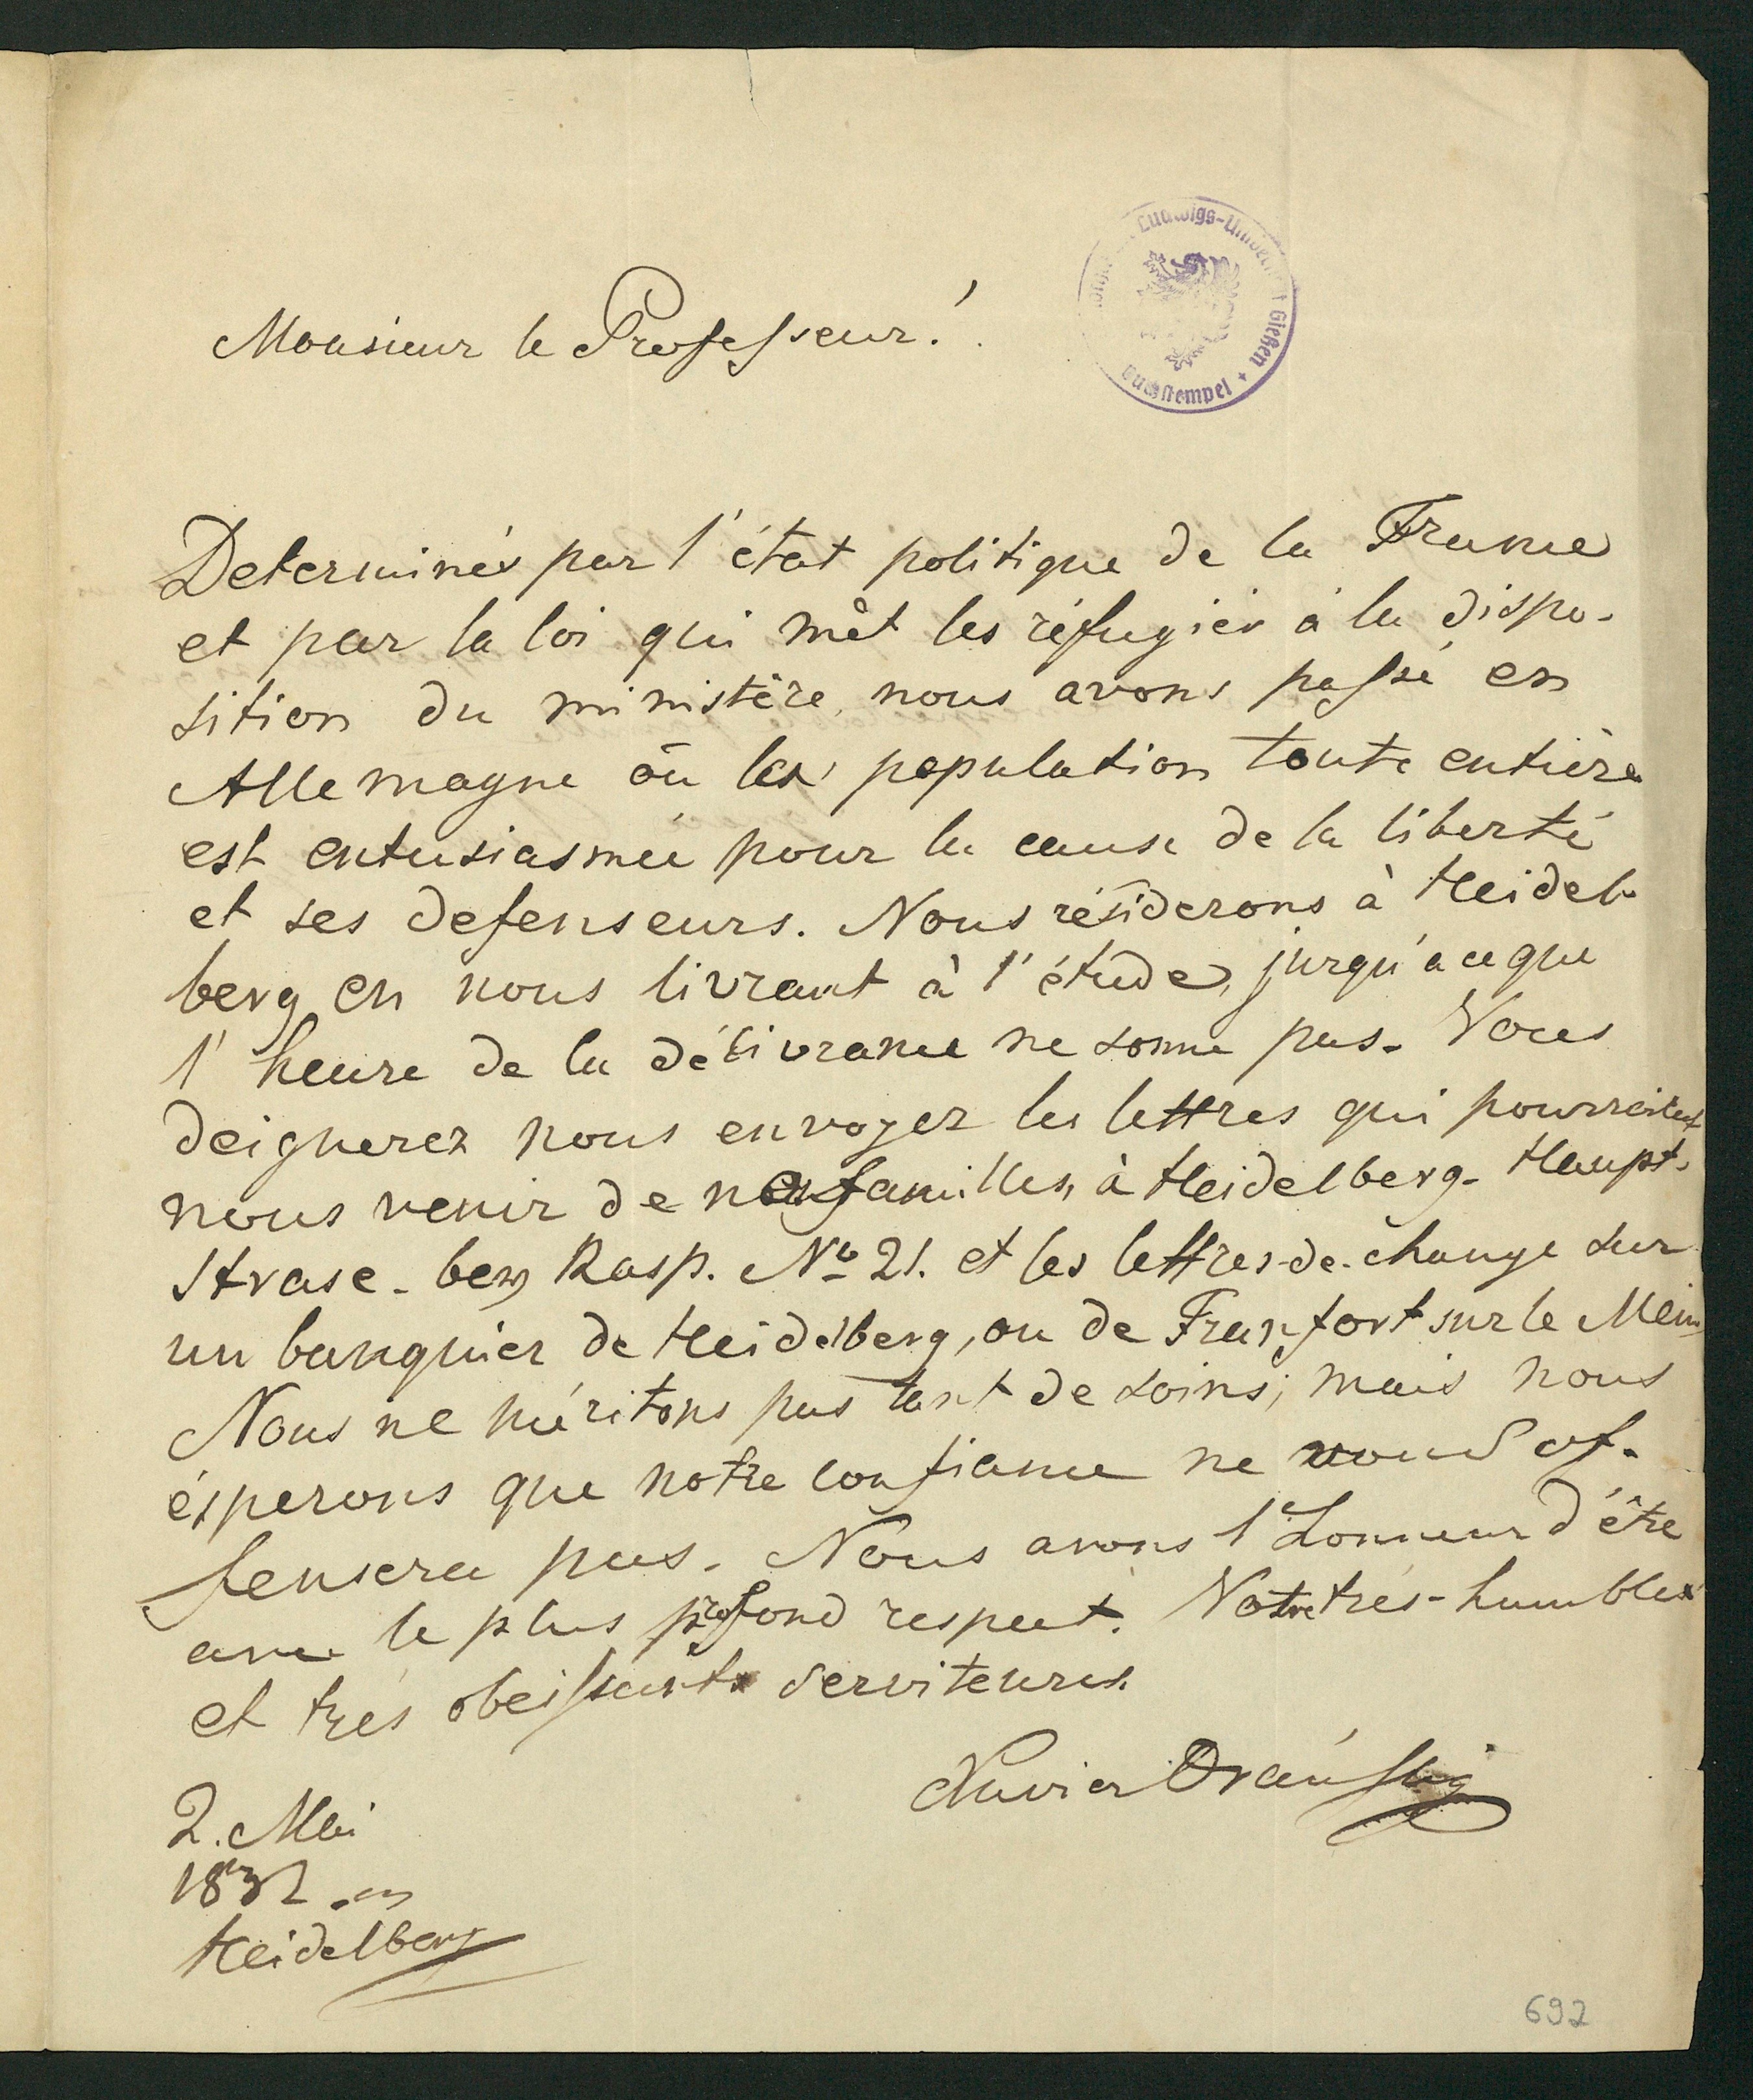 Ludwigs-Univer
Gießen
Buchstempel
Monsieur le Professeur!
Determinés par l'état politique de la France
et par la loi qui mêt les réfugiés à la dispo-
sition du ministère, nous avons passé en
Allemagne où la population toute entière
est entusiasmée pour la cause de la liberté
et ses defenseurs. Nous résiderons à Heidel-
berg en nous livrant à l'étude, jusqu'a ce que
l'heure de la délivrance ne sonne pas. Vous
deignerez nous envoyer les lettres qui pourraient
nous venir de nos familles, à Heidelberg. Haupt-
Strase. bey Rasp. No 21. et les lettres-de-change sur
un banquier de Heidelberg, ou de Franfort sur le Mein
Nous ne méritons pas tant de soins; mais nous
ésperons que notre confiance ne vous of-
fensera pas. Nous avons l'honneur d'être
avec le plus profond respect. Votre très-humble
et très obeissant serviteur.
Xavier
2. Mai
1832. en
Heidelberg
692